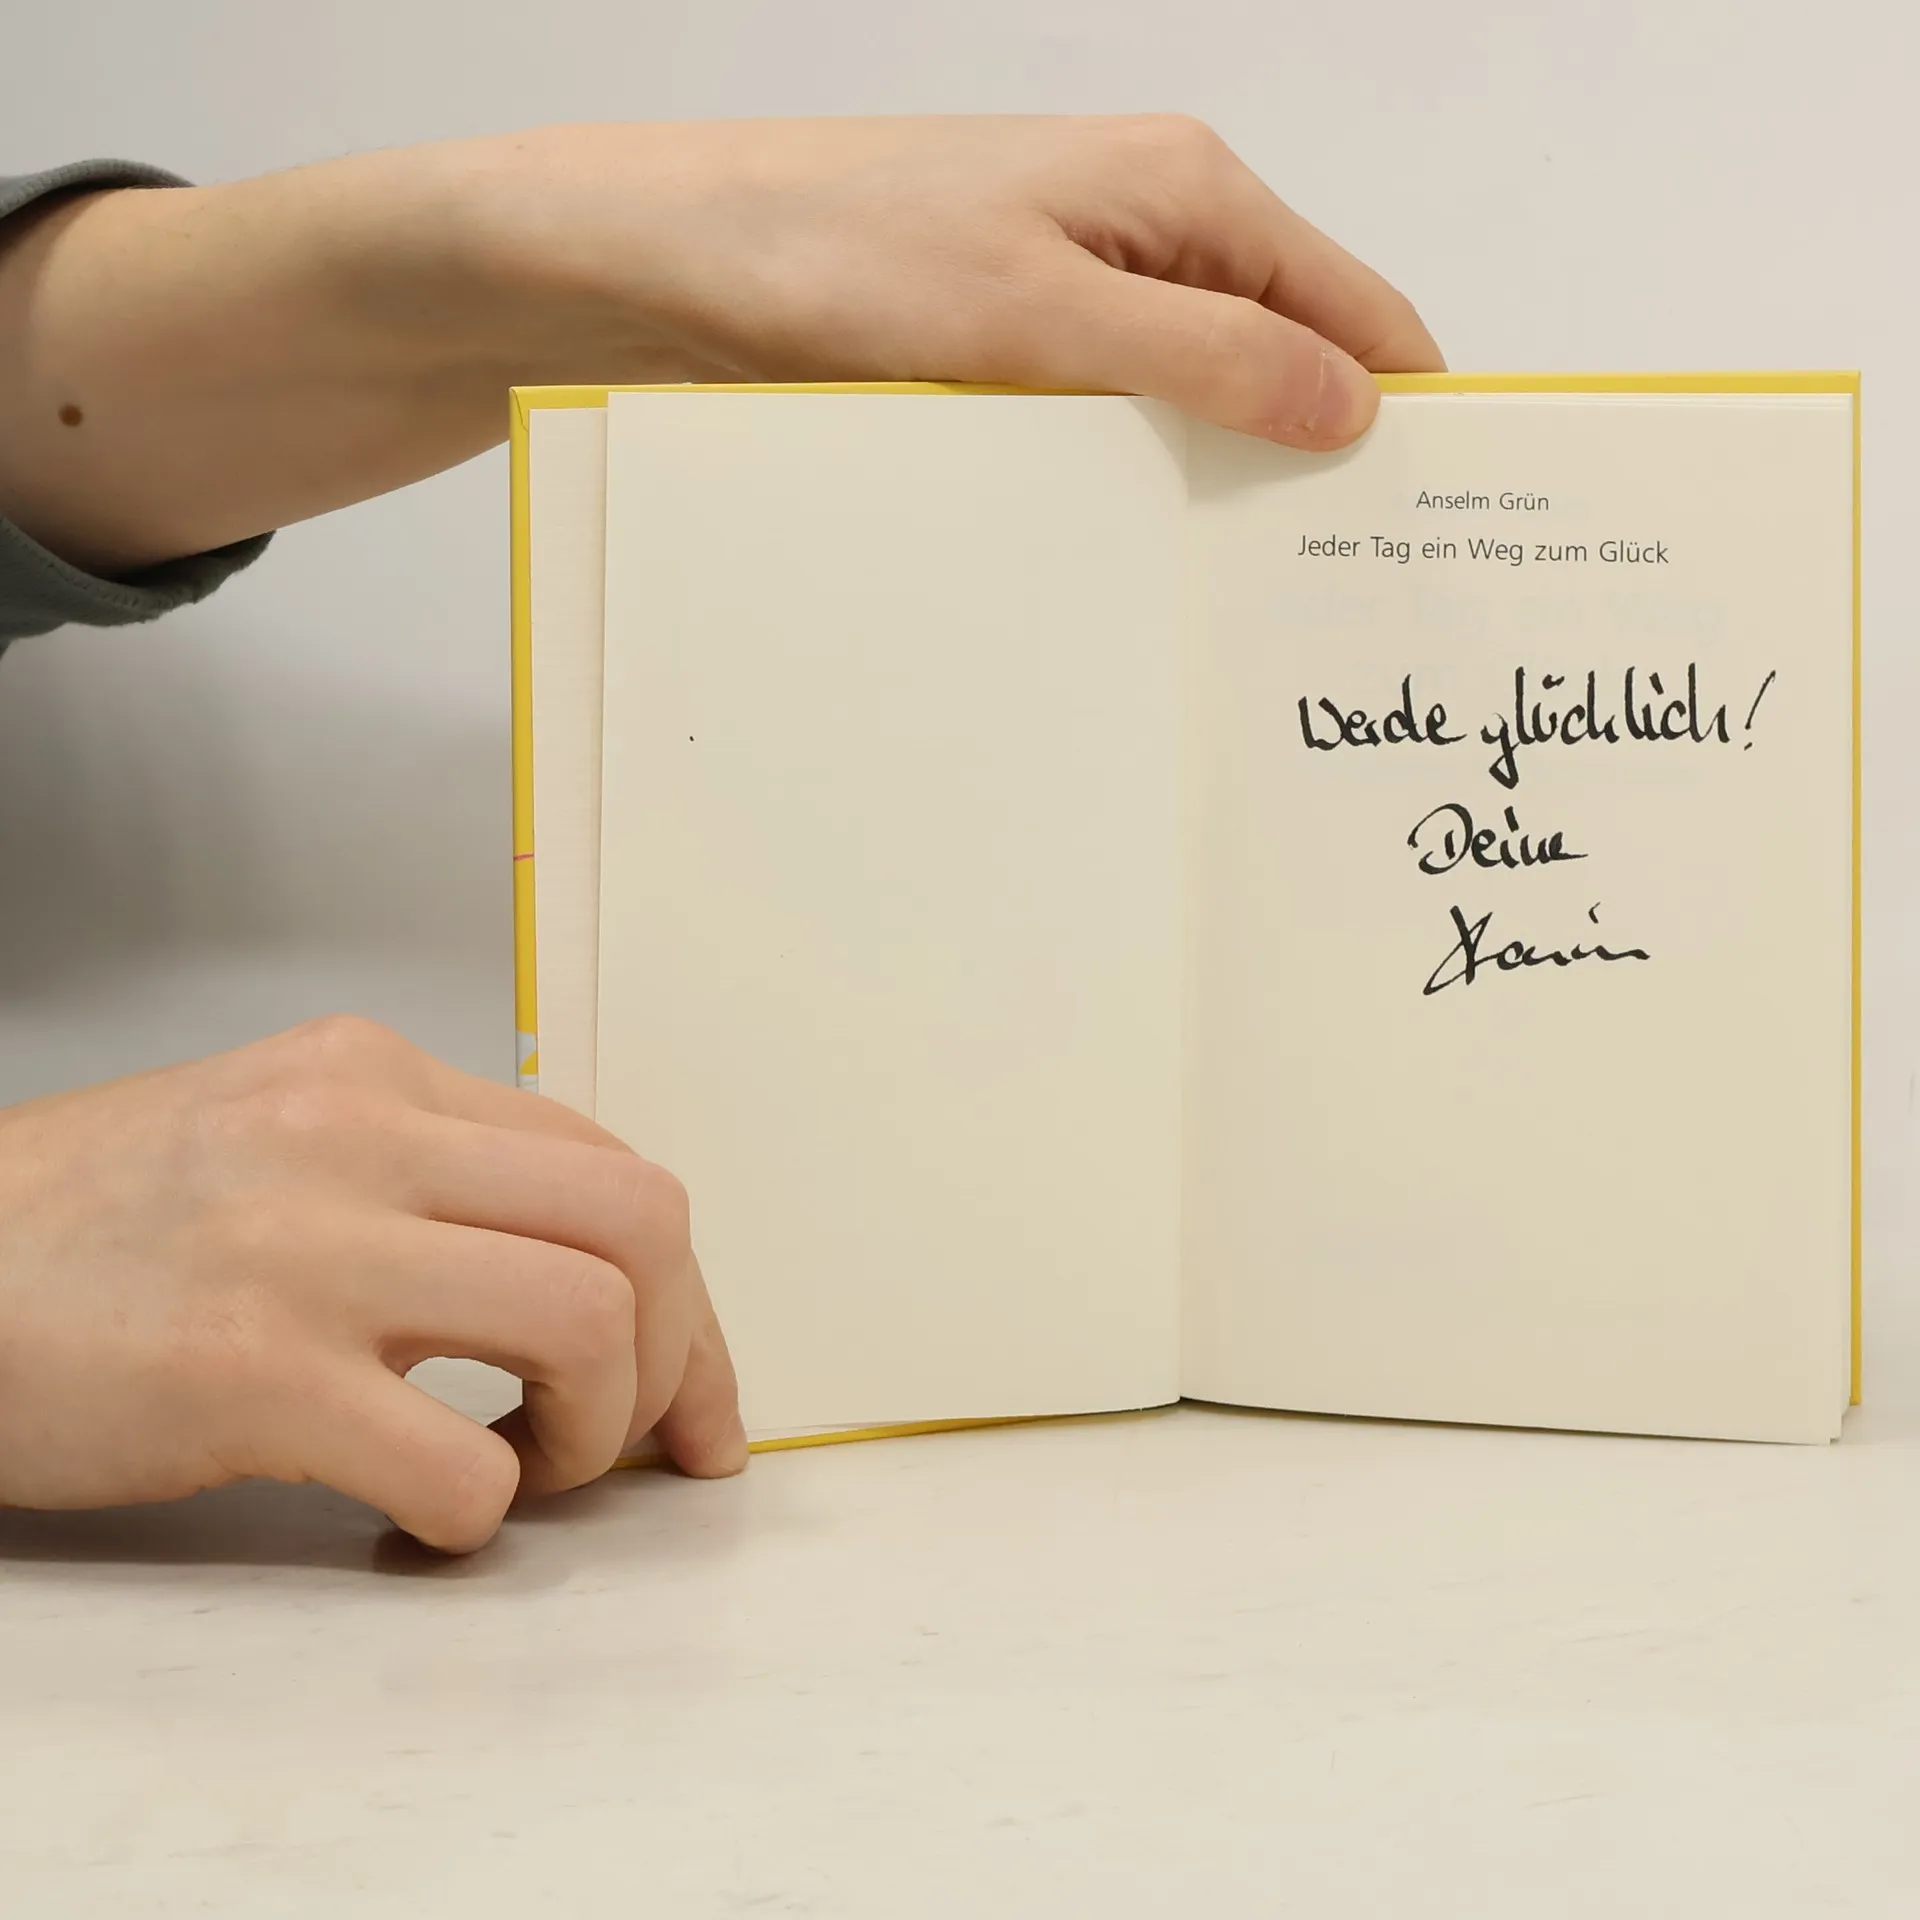 Anselm Grün
Jeder Tag ein Weg zum Glück
Werde glücklich!
Deine
Karin